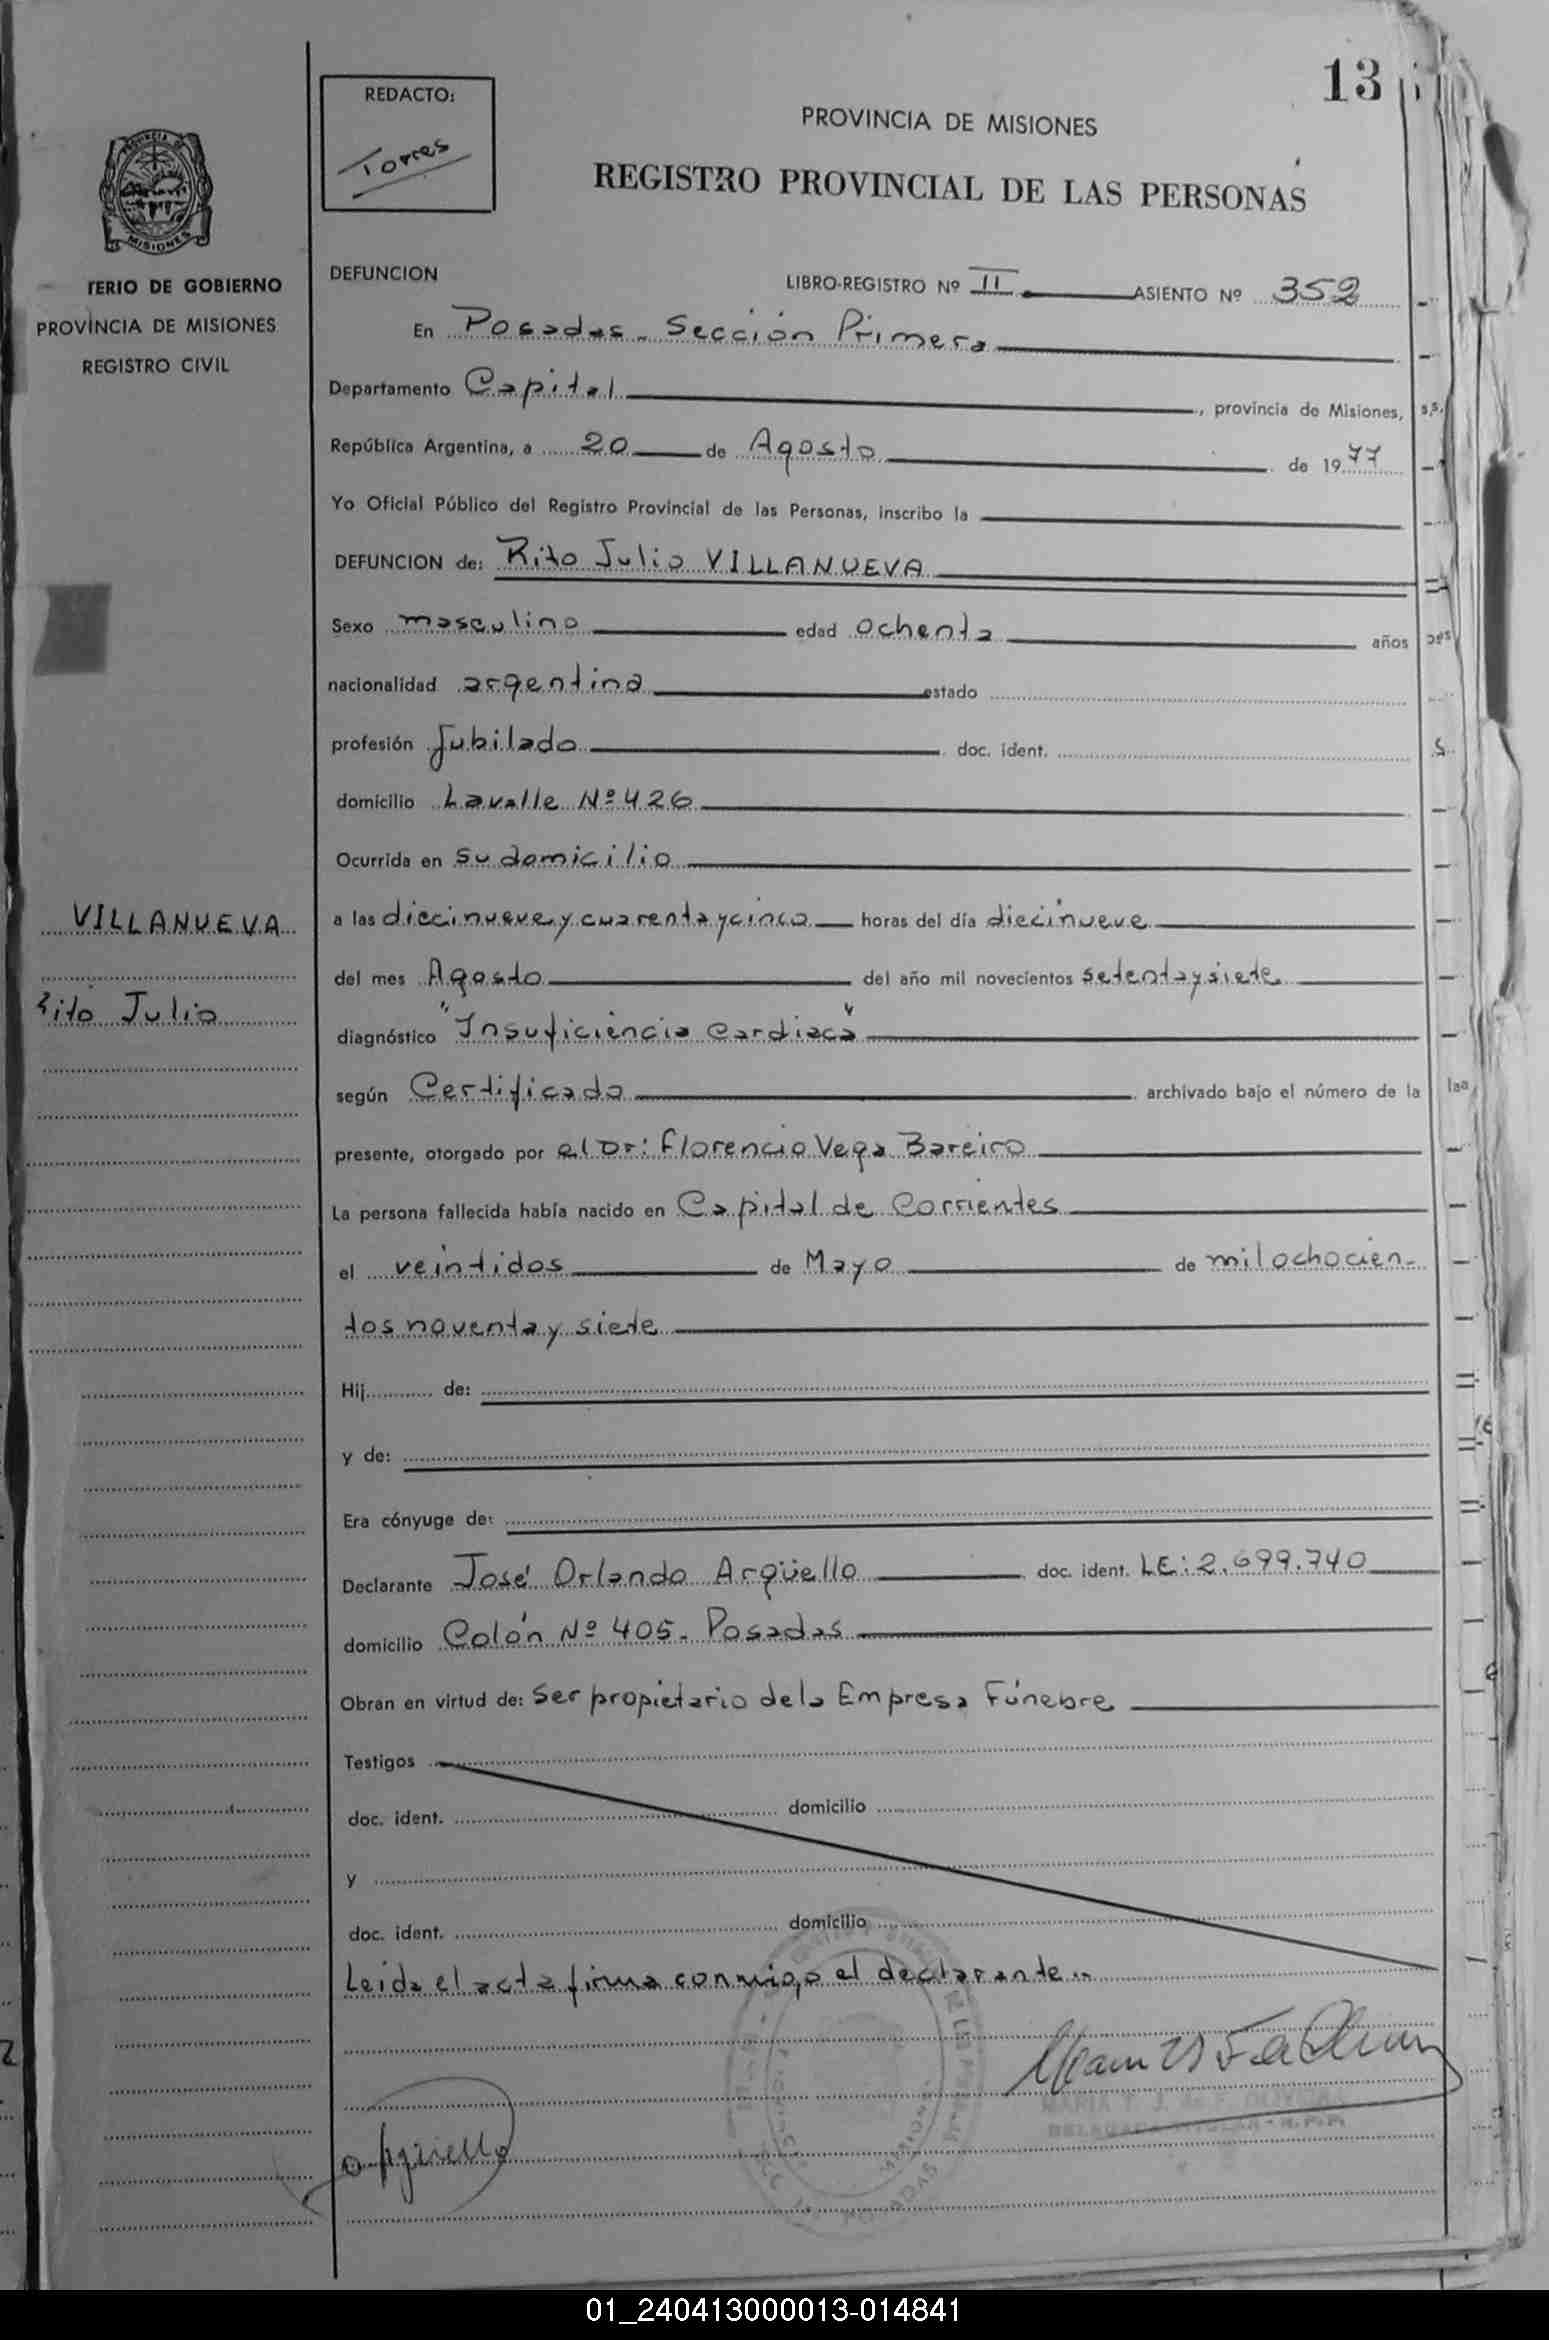 13
REDACTO:
Torres
PROVINCIA DE MISIONES
REGISTRO PROVINCIAL DE LAS PERSONAS
PROVINCIA DE
MISIONES
TERIO DE GOBIERNO
PROVINCIA DE MISIONES
REGISTRO CIVIL
DEFUNCION LIBRO-REGISTRO Nº II ASIENTO Nº 352
En Posadas - Sección Primera
Departamento Capital, provincia de Misiones,
República Argentina, a 20 de Agosto de 1977
Yo Oficial Público del Registro Provincial de las Personas, inscribo la
DEFUNCION de: Rito Julio VILLANUEVA
Sexo masculino edad ochenta años
nacionalidad argentina estado
profesión Jubilado doc. ident.
domicilio Lavalle Nº 426
Ocurrida en su domicilio
VILLANUEVA
Rito Julio
a las diecinueve y cuarenta y cinco horas del día diecinueve
del mes Agosto del año mil novecientos setenta y siete
diagnóstico "Insuficiencia Cardiaca"
según Certificado archivado bajo el número de la
presente, otorgado por el Dr: Florencio Vega Bareiro
La persona fallecida había nacido en Capital de Corrientes
el veintidos de Mayo de mil ochocien-
tos noventa y siete
Hij de:
y de:
Era cónyuge de:
Declarante José Orlando Argüello doc. ident. LE: 2.699.740
domicilio Colón Nº 405 - Posadas
Obran en virtud de: Ser propietario de la Empresa Fúnebre
Testigos
doc. ident. domicilio
y
doc. ident. domicilio
Leida el acta firma conmigo el declarante
01_240413000013-014841